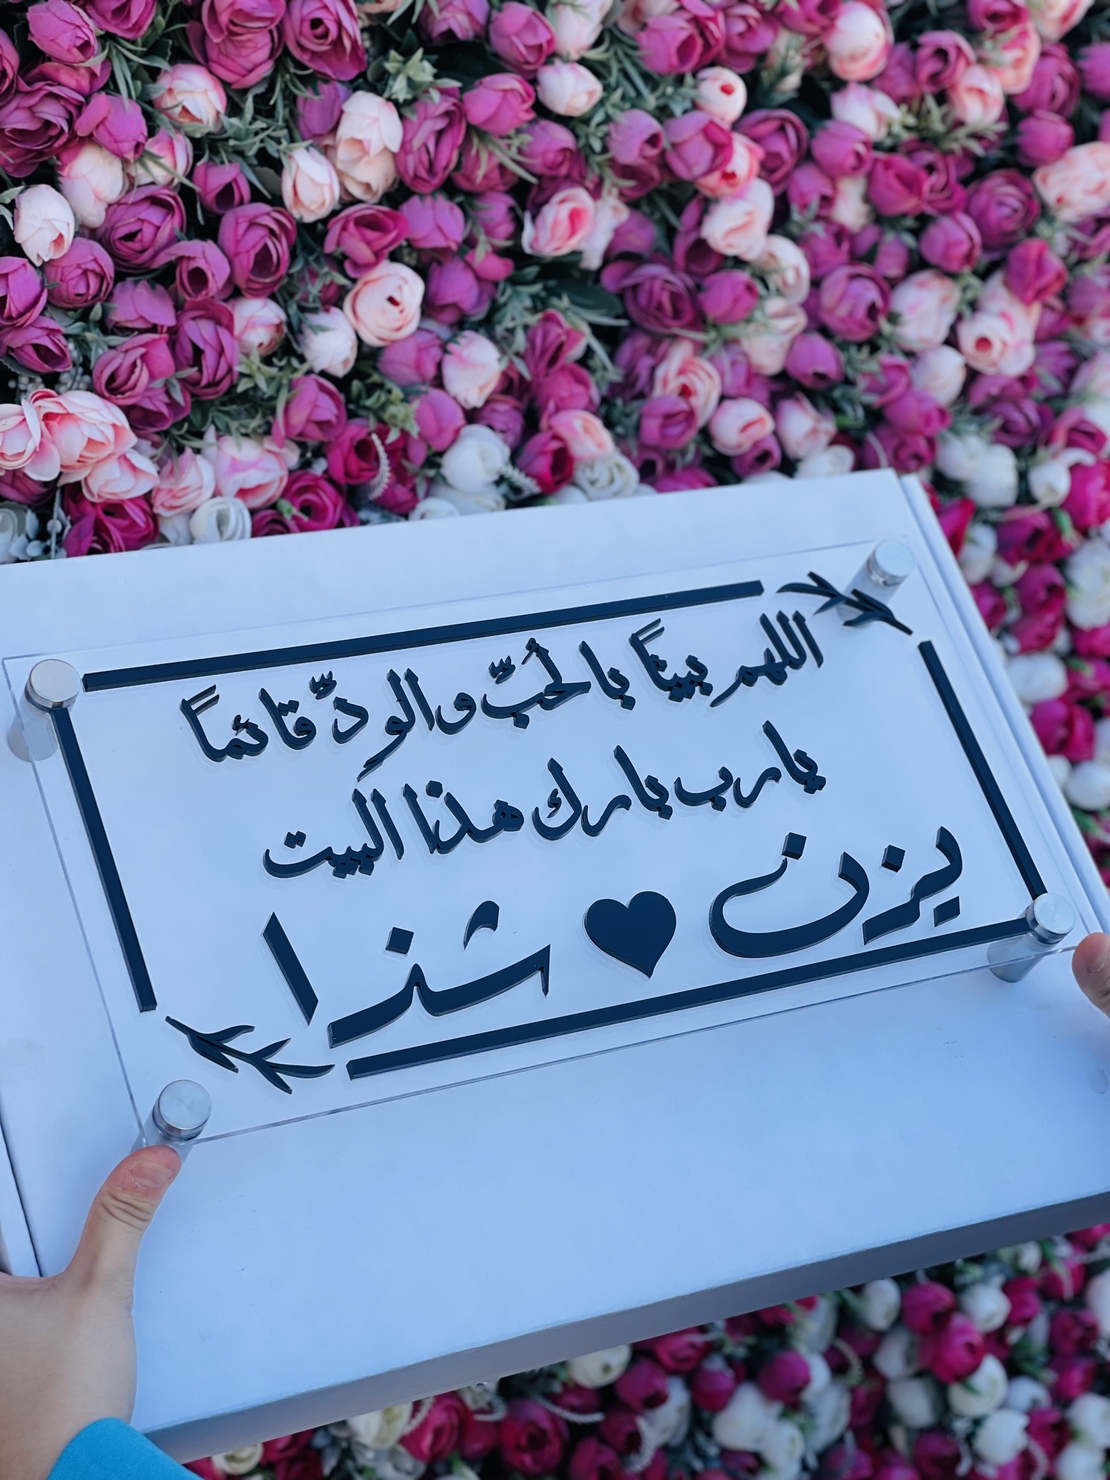 اللهم بيتًا بالحُبّ والودّ قائمًا
يارب بارك هذا البيت
يزن ♥ شذا